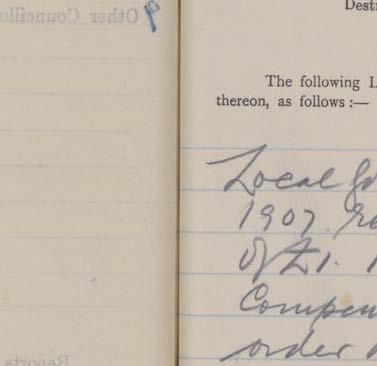 Other Councillo
Desti
The following L
thereon, as follows :—
Local Go
1907. Re
of £1.
Compen
order
Reports